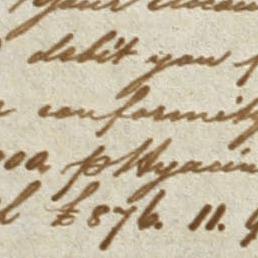 your
debit you
conformity
p Hyacin
£876. 11.